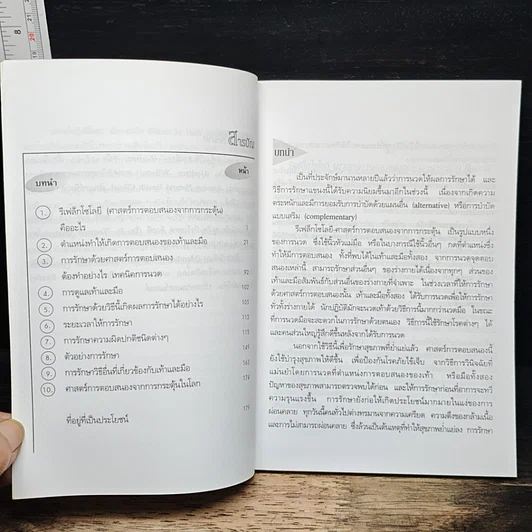 สารบัญ
หน้า
บทนำ
1. รีเฟล็กโซโลยี (ศาสตร์การตอบสนองจากการกระตุ้น)
คืออะไร 1
2. ตำแหน่งทำให้เกิดการตอบสนองของเท้าและมือ 21
3. การรักษาด้วยศาสตร์การตอบสนอง
ต้องทำอย่างไร เทคนิคการนวด 92
4. การดูแลเท้าและมือ 102
5. การรักษาด้วยวิธีนี้เกิดผลการรักษาได้อย่างไร 105
6. ระยะเวลาให้การรักษา
7. การรักษาความผิดปกติชนิดต่างๆ
8. ตัวอย่างการรักษา 145
9. การรักษาวิธีอื่นที่เกี่ยวข้องกับเท้าและมือ 161
10. ศาสตร์การตอบสนองจากการกระตุ้นในโลก
ที่อยู่ที่เป็นประโยชน์
บทนำ
เป็นที่ประจักษ์มานานหลายปีแล้วว่าการนวดให้ผลการรักษาได้ และ
วิธีการรักษาแขนงนี้ได้รับความนิยมขึ้นมาอีกในช่วงนี้ เนื่องจากเกิดความ
ตระหนักและมีการยอมรับการบำบัดด้วยแผนอื่น (alternative) หรือการบำบัด
แบบเสริม (complementary)
รีเฟล็กโซโลยี-ศาสตร์การตอบสนองจากการกระตุ้น เป็นรูปแบบหนึ่ง
ของการนวด ซึ่งใช้นิ้วหัวแม่มือ หรือในบางกรณีใช้นิ้วอื่นๆ กดที่ตำแหน่งซึ่ง
ทำให้มีการตอบสนอง ทั้งที่พบได้ในเท้าและมือทั้งสอง จากการนวดจุดตอบ
สนองเหล่านี้ สามารถรักษาส่วนอื่นๆ ของร่างกายได้เนื่องจากทุกๆ ส่วนของ
เท้าและมือสัมพันธ์กับส่วนอื่นของร่างกายที่จำเพาะ ในช่วงเวลาที่ให้การรักษา
ด้วยศาสตร์การตอบสนองนั้น เท้าและมือทั้งสอง ได้รับการนวดเพื่อให้การรักษา
ทั่วทั้งร่างกาย นักปฏิบัติมักจะนวดเท้าด้วยวิธีการนี้มากกว่านวดมือ ในขณะ
ที่การนวดมือจะสะดวกในการรักษาด้วยตนเอง วิธีการนี้ใช้รักษาโรคต่างๆ ได้
และคนส่วนใหญ่รู้สึกดีขึ้นหลังจากได้รับการนวด
นอกจากใช้วิธีนี้เพื่อรักษาสุขภาพที่ย่ำแย่แล้ว ศาสตร์การตอบสนองนี้
ยังใช้บำรุงสุขภาพให้ดีขึ้น เพื่อป้องกันโรคภัยไข้เจ็บ จากวิธีการวินิจฉัยที่
แม่นยำโดยการนวดที่ตำแหน่งการตอบสนองของเท้า หรือมือทั้งสอง
ปัญหาของสุขภาพสามารถตรวจพบได้ก่อน และให้การรักษาก่อนที่อาการจะทวี
ความรุนแรงขึ้น การรักษายังก่อให้เกิดประโยชน์มากมายในแง่ของการ
ผ่อนคลาย ทุกวันนี้คนทั่วไปต่างทรมานจากความเครียด ความตึงของกล้ามเนื้อ
และการไม่สามารถผ่อนคลาย ซึ่งล้วนเป็นต้นเหตุที่ทำให้สุขภาพย่ำแย่ลง การรักษา